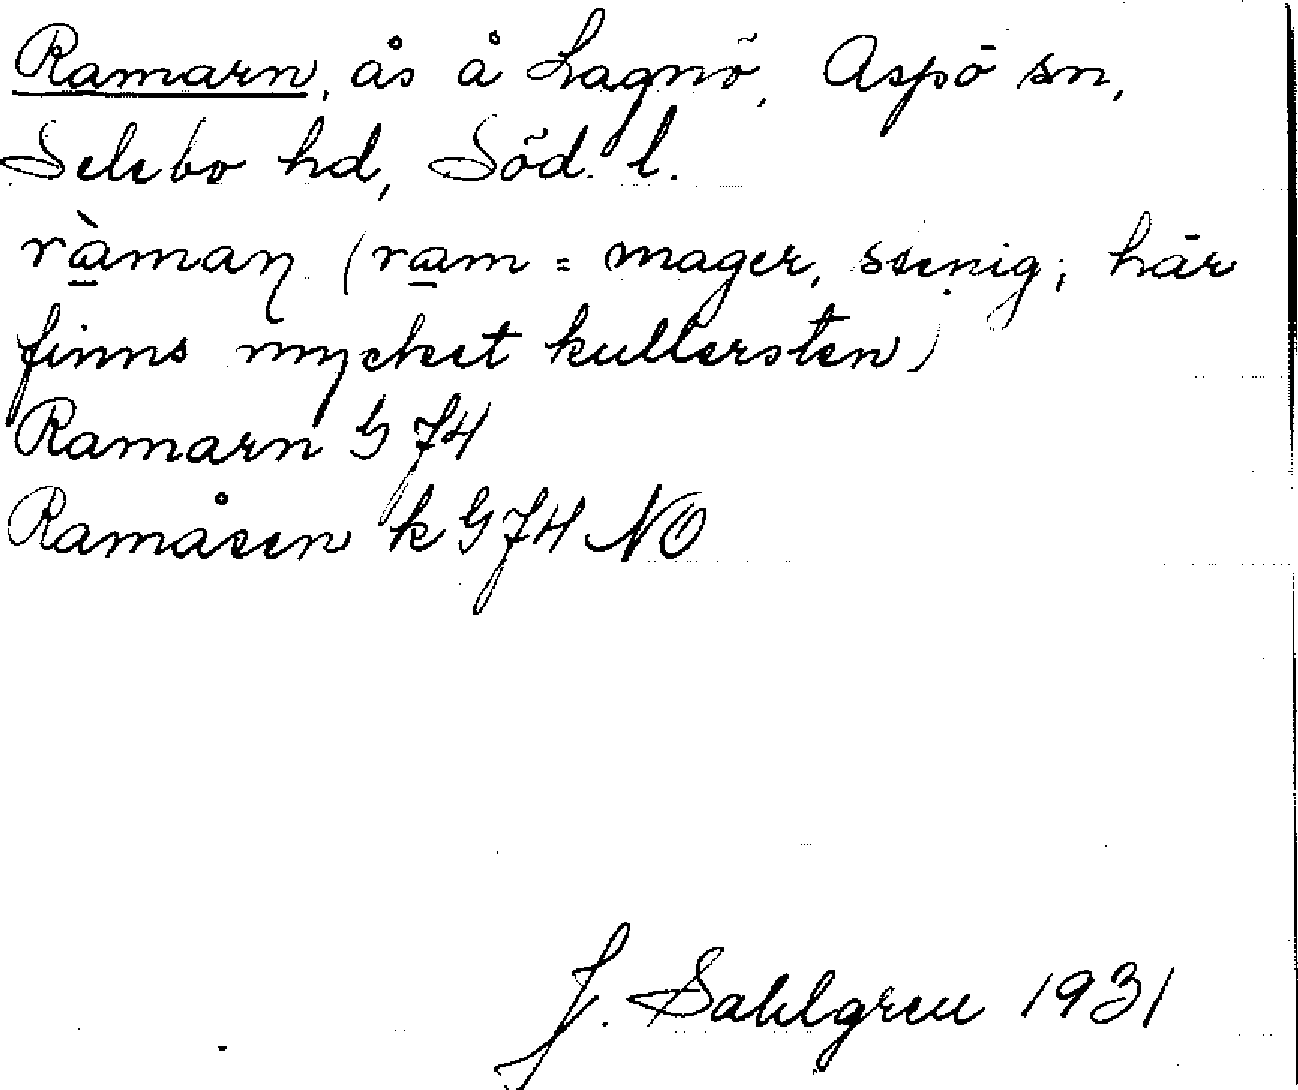 Ramarn, ås å Lagnö, Aspö sn,
Selebo hd, Söd. l.
ràmaɳ (ram = mager, stenig; här
finns mycket kullersten)
Ramarn G 74
Ramåsen k G 74 NO
J. Sahlgren 1931